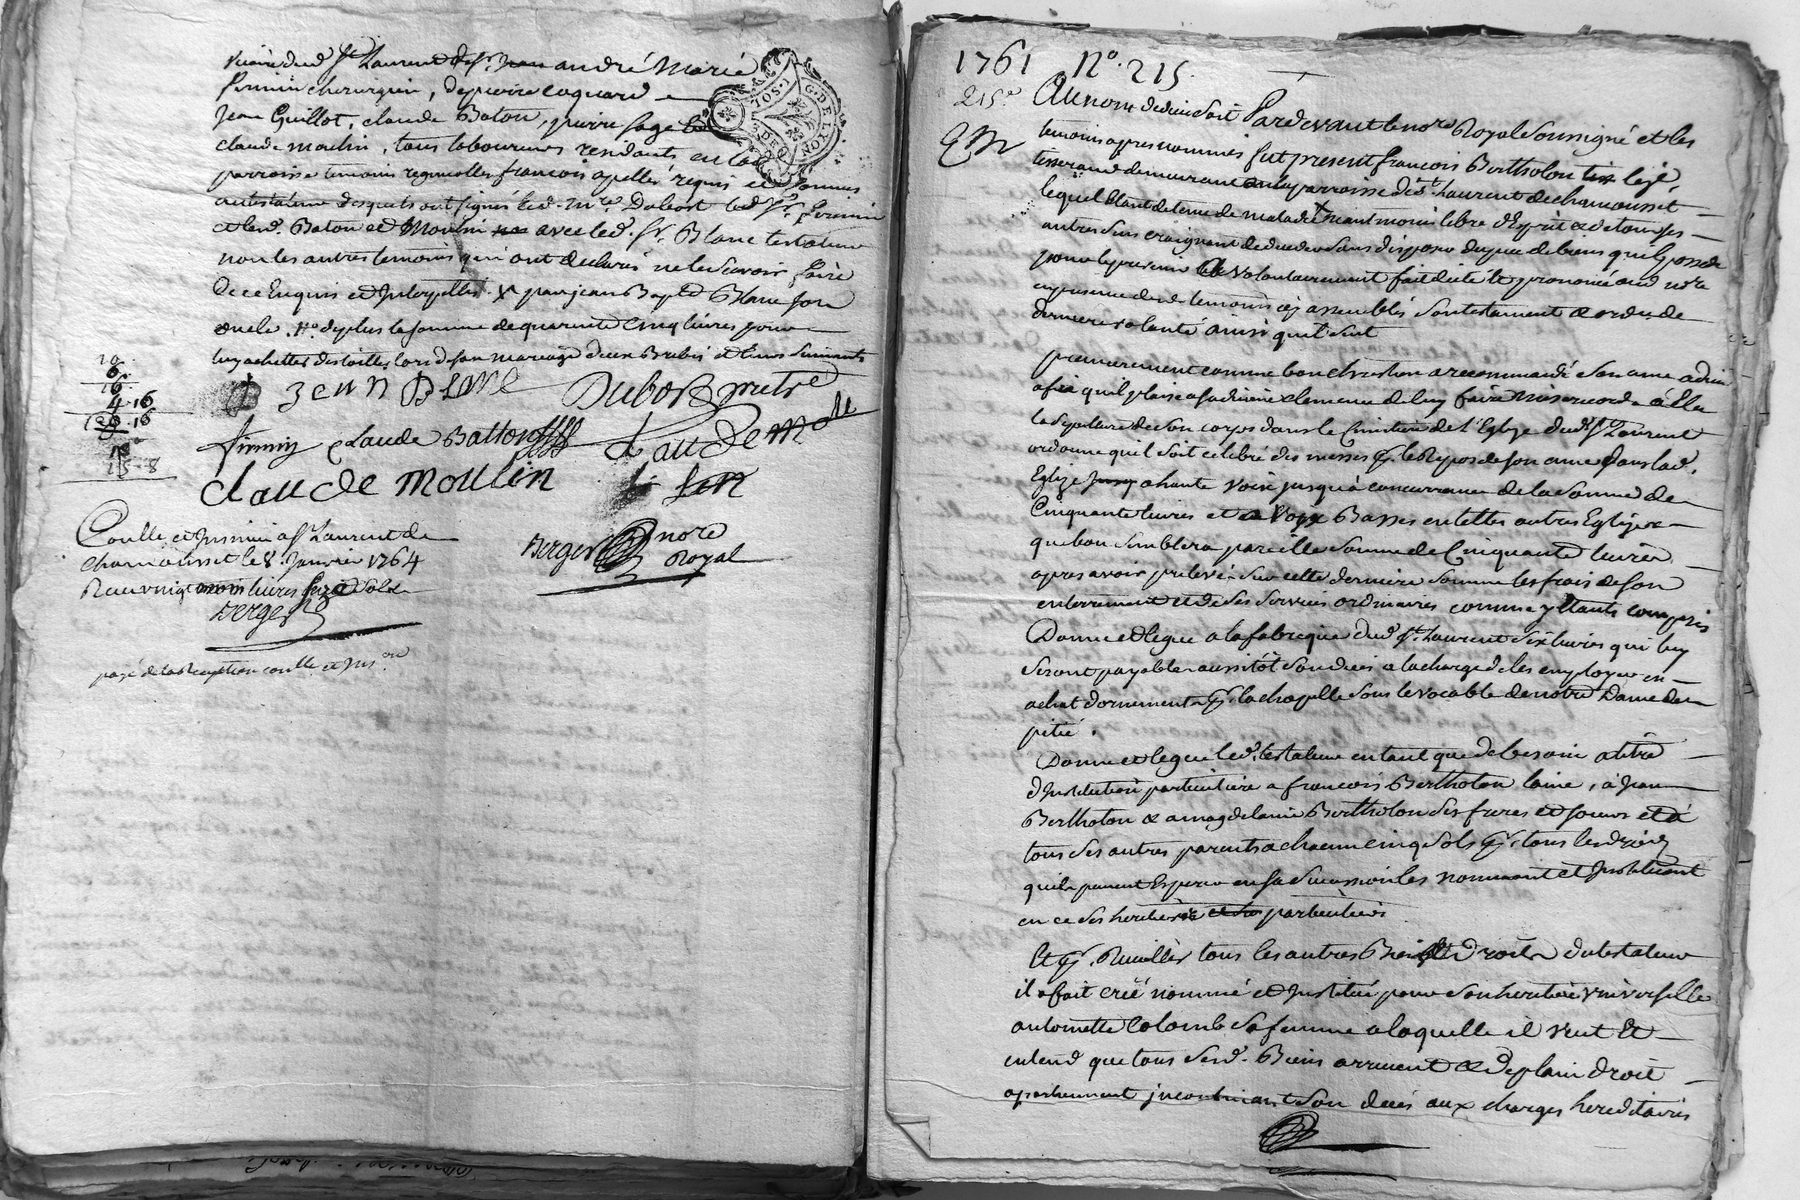 vicaire dud St Laurent de Sr Jean andré Marie
firmin chirurgien, de pierre coquard
Jean Guillot, claude Baton, pierre sage et
claude moulin, tous laboureurs residants en lad
parroisse temoins regnicolles françois apellés requis et
au testateur desquels ont signés led. Mre. Dubost led Sr. firmin
et led. Baton et Moulin avec led. Sr. Blanc testateur
non les autres temoins qui ont declarés ne le scavoir faire
de ce Enquis et Interpellés. par jean Bapt Blanc son
oncle. de plus la somme de quarente cinq livres pour
luy achetter des toilles lors de son mariage deux Brebis et leurs suivants
G.DE LYON
10
6
16
4.16
16
15-8
JEAN BLANC Dubost pretre
firmin Claude Batton Claude
Claude Moulin
Berger nore
Royal
Conllé et Insinué a St Laurent de
chamousset le 8. Janvier 1764
Recu vingt livres seize sols
Berger
payé de la Reception conlle et Inson
1761 No. 215.
215e
Au nom de dieu soit Pardevant le nore Royal soussigné et les
temoins apres nommés fut present françois Bertholon
tisserand demeurant en la parroisse de St. Laurent de chamousset
lequel Etant detenu de maladie neant moins libre d'Esprit et de tous ses
autres sens craignant de deceder sans disposer du peu de biens qu'il possede
pour le prevenir a volontairement fait dicté et prononcé aud nore
en presence desd temoins assemblés son testament et ordre de
derniere volonté ainsi qu'il suit
premierement comme bon chrestien a recommandé son ame a dieu
afin qu'il plaise a sa divine clemence de luy faire misericorde a Elu
la sepulture de son corps dans le Cimetiere de l'Eglize dud St Laurent
ordonne qu'il soit celebré des messes pr. le Repos de son ame dans lad.
Eglize a haute voix jusqu'a concurrance de la somme de
Cinquante livres et a voix Basses en telles autres Eglizes
que bon semblera pareille somme de Cinquante livres
apres avoir prelevé sur cette derniere somme les frais de son
enterrement et de ses services ordinaires comme y Etants compris
Donne et legue a la fabrique dud St. Laurent six livres qui luy
seront payables aussitôt son deces a la charge de les employer en
achat d'ornements pr. la chapelle sous le vocable de notre Dame de
pitié.
Donne et legue led. testateur en tant que de besoin a titre
d'Institution particuliere a françois Bertholon laine, à Jean
Bertholon & a magdelaine Bertholon ses freres et soeurs et à
tous ses autres parents a chacun cinq sols pr. tous les droits
qu'ils peuvent Esperer en sa succession les nommant et Instituant
en ce ses heritiers particuliers
Et pr. Recuillir tous les autres Biens et Droits du testateur
il a fait créé nommé et Institué pour son heritiere universelle
antoinette Colomb sa femme a laquelle il veut Et
entend que tous sesd. Biens arrivent et de plain droit
apartiennent incontinant son deces aux charges hereditaires